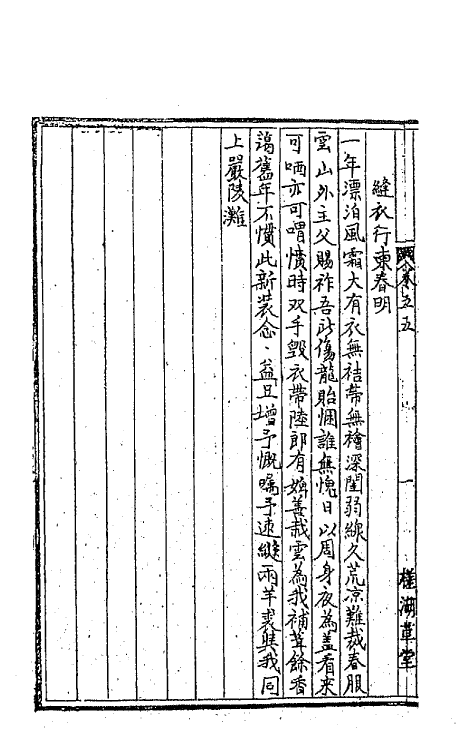 縫衣行柬春明
一年漂泊風霜大有衣無袺帶無襘深閨弱線久荒凉難裁春服
雲山外主父賜祚吾所傷龍貽悃誰無愧日以周身夜為蓋看来
可哂亦可喟憤時双手毀衣帶陸郎有嫂善裁雲為我補葺餘香
藹舊年不慣此新裝念、益且增予慨囑予速縫兩羊裘與我同
上嚴陵灘
卷五
一
槎湖草堂